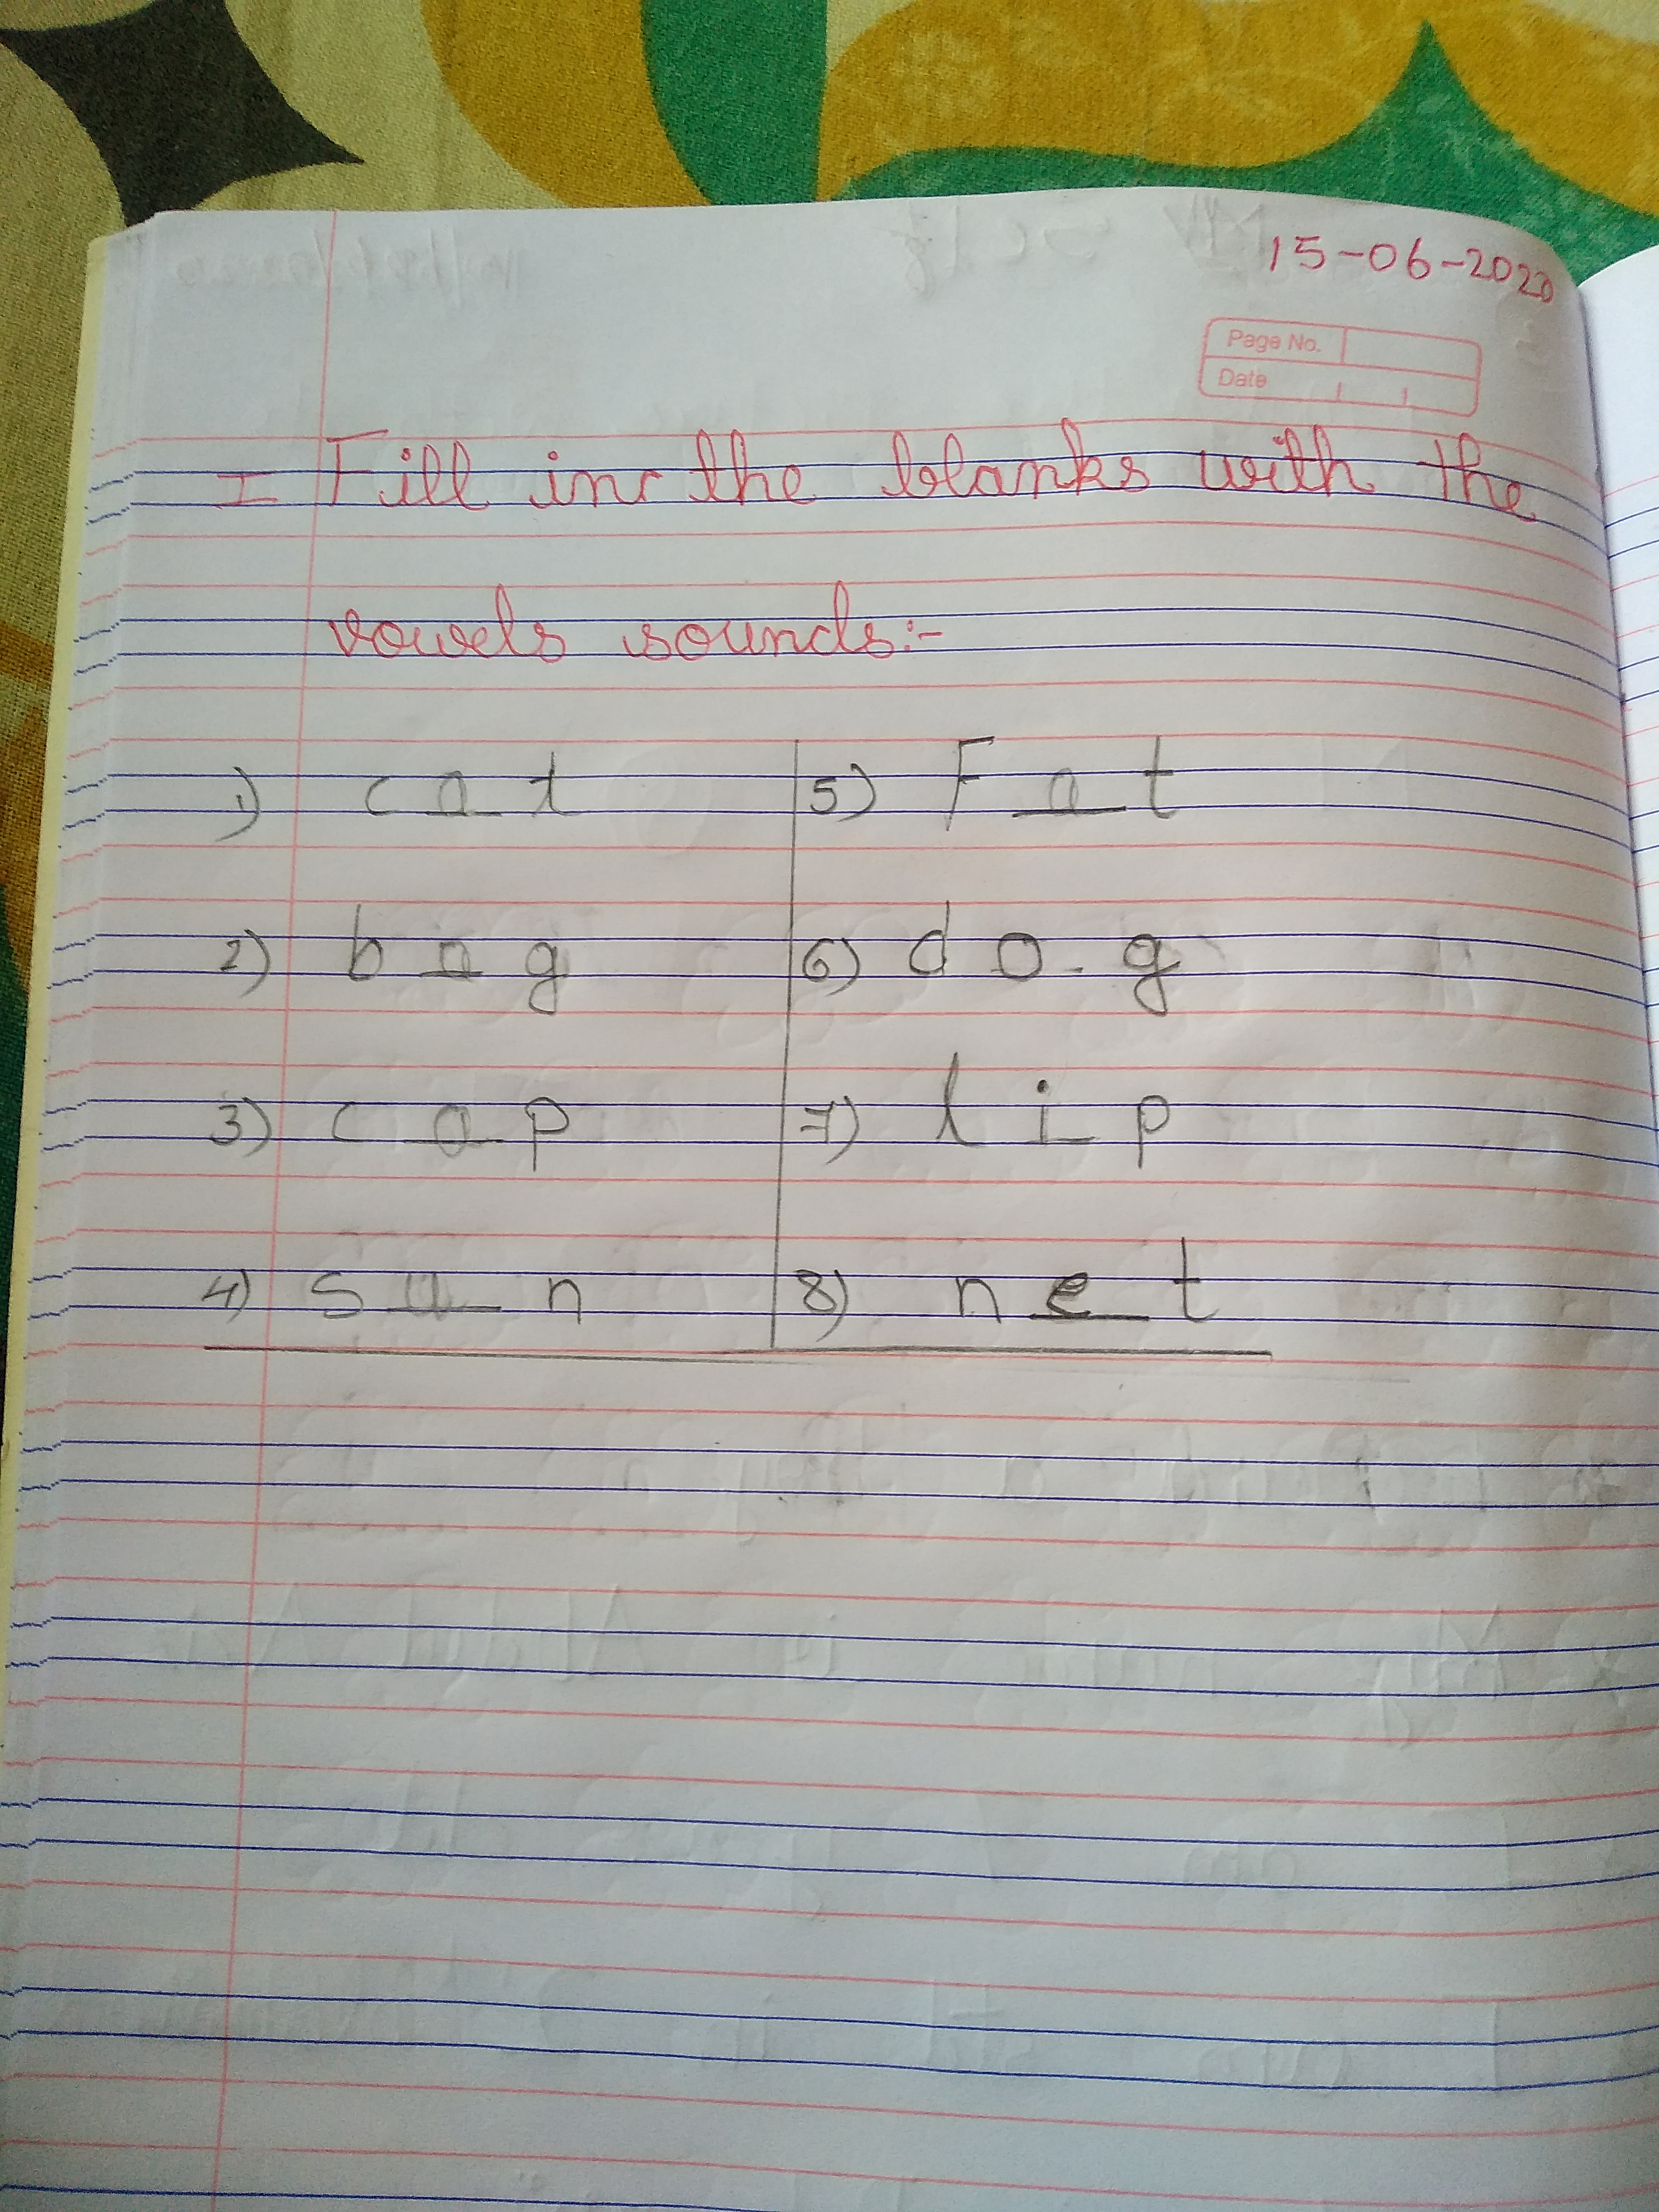 15-06-2020
Page No.
Date
I Fill in the blanks with the
vowels sounds:-
1) c a t 5) F a t
2) b a g 6) d o g
3) c a p 7) l i p
4) s u n 8) n e t